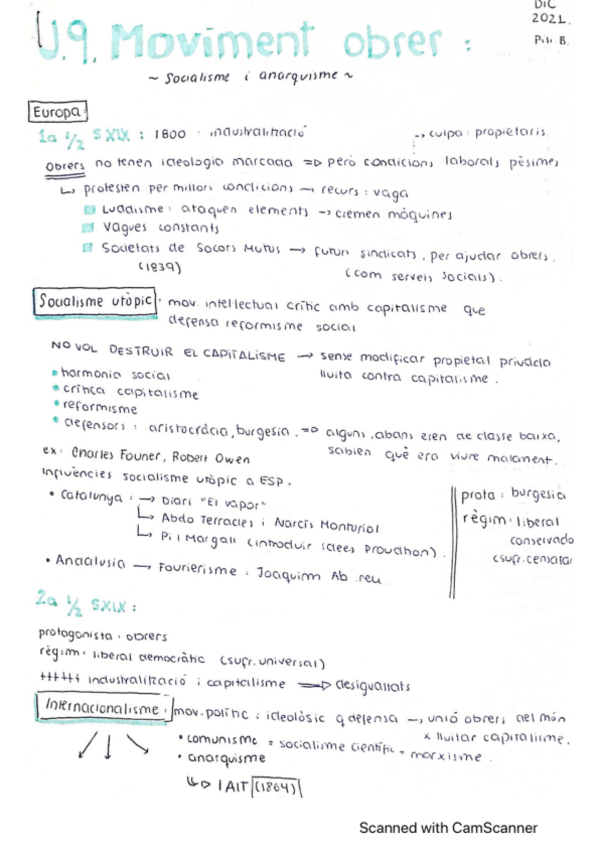 DIC
2021.
Pili B.
U.9. Moviment obrer :
~ Socialisme i anarquisme ~
Europa
1a 1/2 SXIX : 1800 · industralització
--> culpa: propietaris
Obrers no tenen ideologia marcada => però condicions laborals pèsimes
↳ protesten per millors condicions → recurs : vaga
Luddisme : ataquen elements → cremen màquines
Vagues constants
Societats de Socors Mutus → futurs sindicats, per ajudar obrers.
(1839)
(com serveis socials).
Socialisme utòpic : mov. intel·lectual crític amb capitalisme que
defensa reformisme social
NO VOL DESTRUIR EL CAPITALISME → sense modificar propietat privada
lluita contra capitalisme.
• harmonia social
• crítica capitalisme
• reformisme
• defensors : aristocràcia, burgesia. => alguns abans eren de classe baixa,
sabien què era viure malament.
ex: Charles Fourier, Robert Owen
Influències socialisme utòpic a ESP.
• Catalunya : → Diari "El vapor"
↳ Abdo Terrades i Narcís Monturiol
↳ Pi i Margall (introduir idees Proudhon).
• Andalusia → Fourierisme : Joaquim Ab reu
prota : burgesia
règim : liberal
conservado
(sufr.censatar
2a 1/2 SXIX :
protagonista : obrers
règim : liberal democràtic (sufr. universal)
++++++ industralització i capitalisme => desigualtats
Internacionalisme : mov. polític i ideològic q defensa → unió obrers del món
x lluitar capitalisme.
• comunisme = socialisme científic = marxisme.
• anarquisme
↳ I AIT (1864)
Scanned with CamScanner